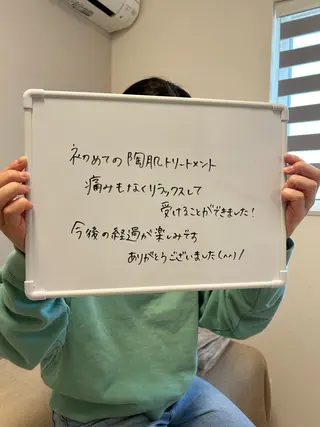 初めての陶肌トリートメント
痛みもなくリラックスして
受けることができました!
今後の経過が楽しみです
ありがとうございました(^^)/